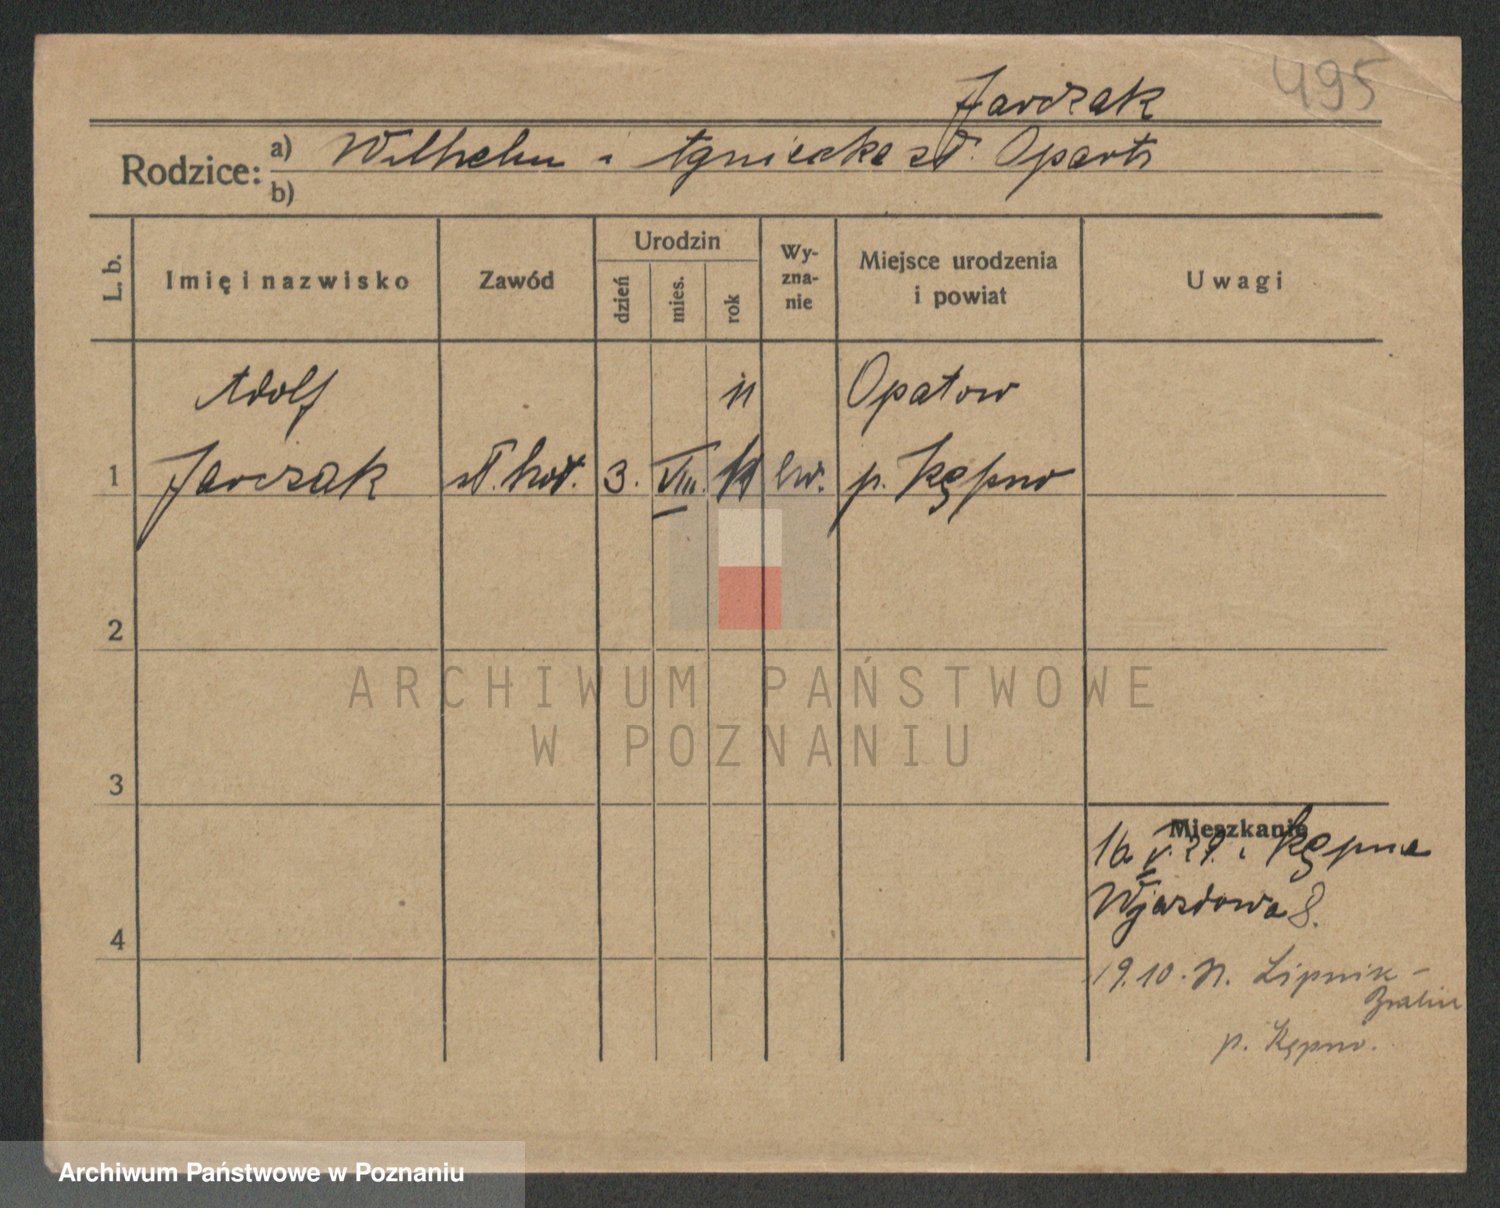 495
Jarczak
Rodzice: a) Wilhelm i Agnieszka zd.
b)
L. b.
Imię i nazwisko
Zawód
Urodzin
dzień
mies.
rok
Wy-
zna-
nie
Miejsce urodzenia
i powiat
Uwagi
Adolf
11
Opatow
1 Jarczak
3. VIII.
p. Kępno
2
3
4
Mieszkanie
16. V. 29. Kępna
Wjazdowa 8.
19.10. Lipnik -
Bralin
p. Kępno.
ARCHIWUM PAŃSTWOWE
W POZNANIU
Archiwum Państwowe w Poznaniu